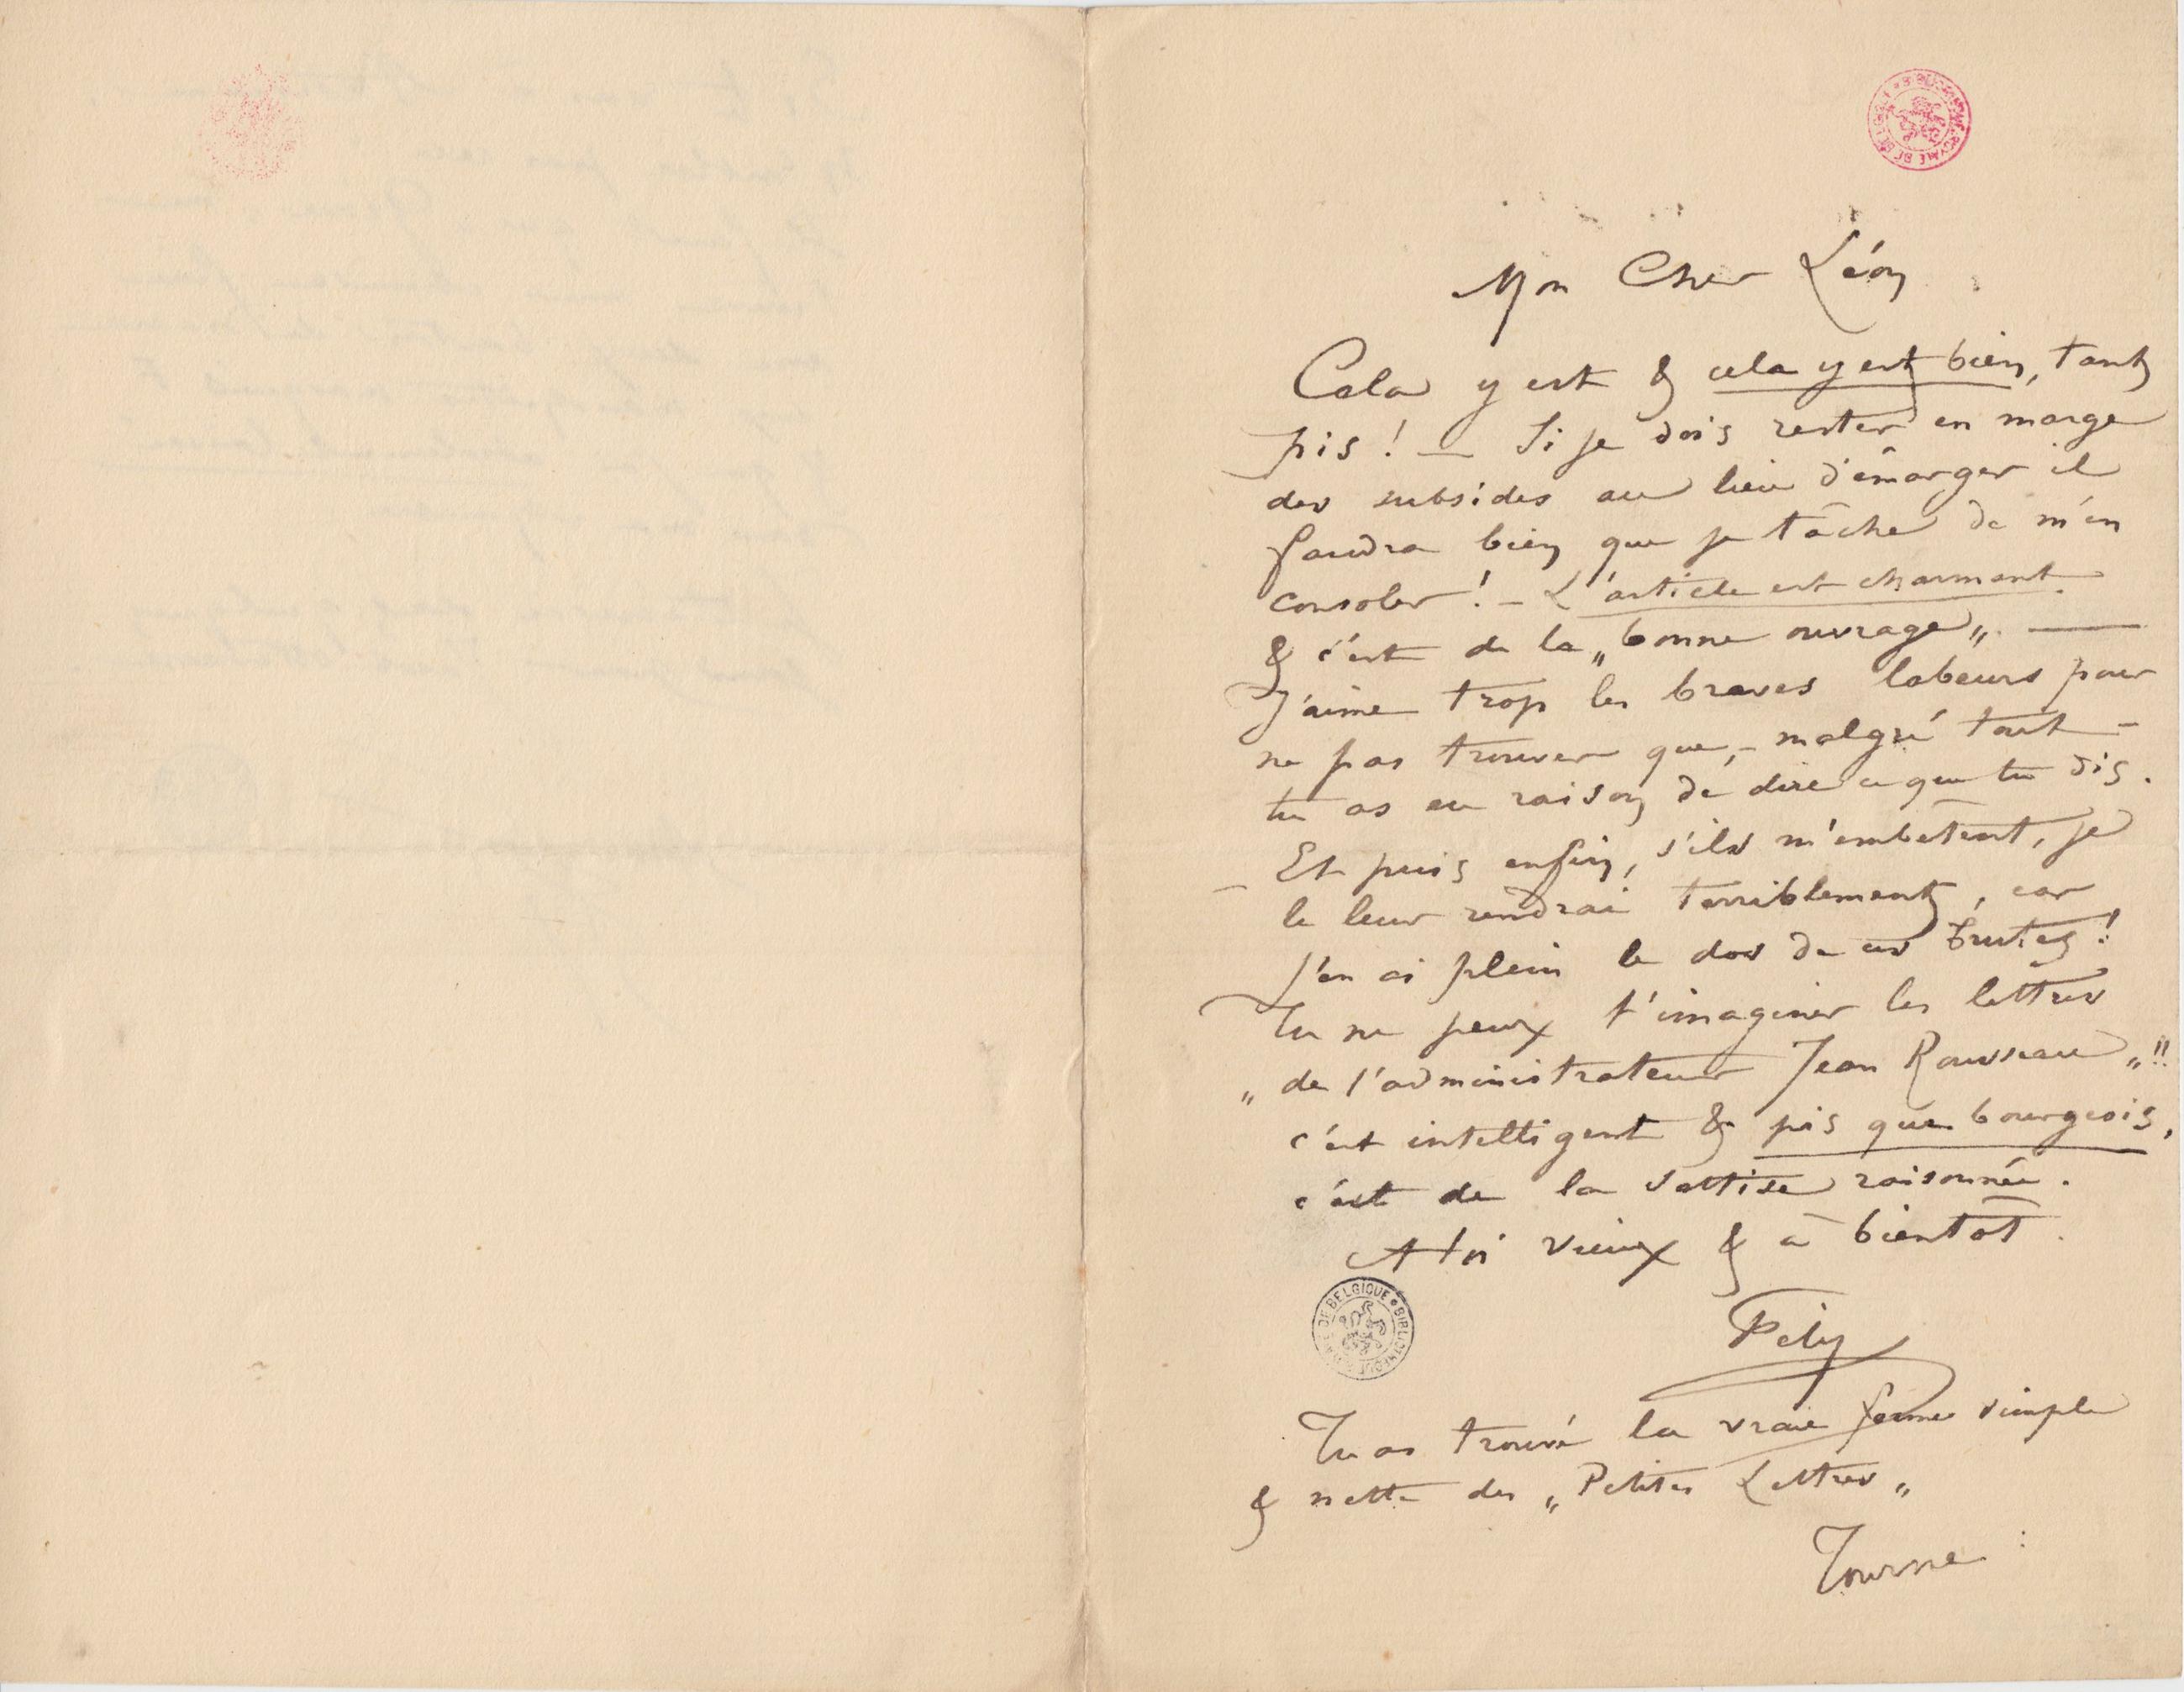 Mon Cher Léon
Cela y est & cela y est bien, tant
pis ! — Si je dois rester en marge
des subsides au lieu d'émarger il
faudra bien que je tâche de m'en
consoler ! – L'article est charmant.
& c'est de la „bonne ouvrage„. —
J'aime trop les braves labeurs pour
ne pas trouver que, – malgré tout –
tu as eu raison de dire ce que tu dis.
– Et puis enfin, s'ils m'embêtent, je
le leur rendrai terriblement, car
j'en ai plein le dos de ces brutes !
Tu ne peux t'imaginer les lettres
„ de l'administrateur Jean Rousseau „!!
c'est intelligent & pis que bourgeois,
c'est de la sottise raisonnée.
A toi vieux & à bientôt.
DE BELGIQUE • BIBLIOTHEQUE
Fély
Tu as trouvé la vraie forme simple
& nette des „Petites Lettres„
Tourne :